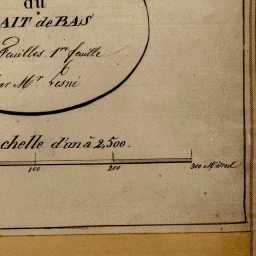 du
AIT de BAS
Feuilles. 1re feuille
Mr Lesné
chelle d'un à 2,500.
100 200 300 Mètres